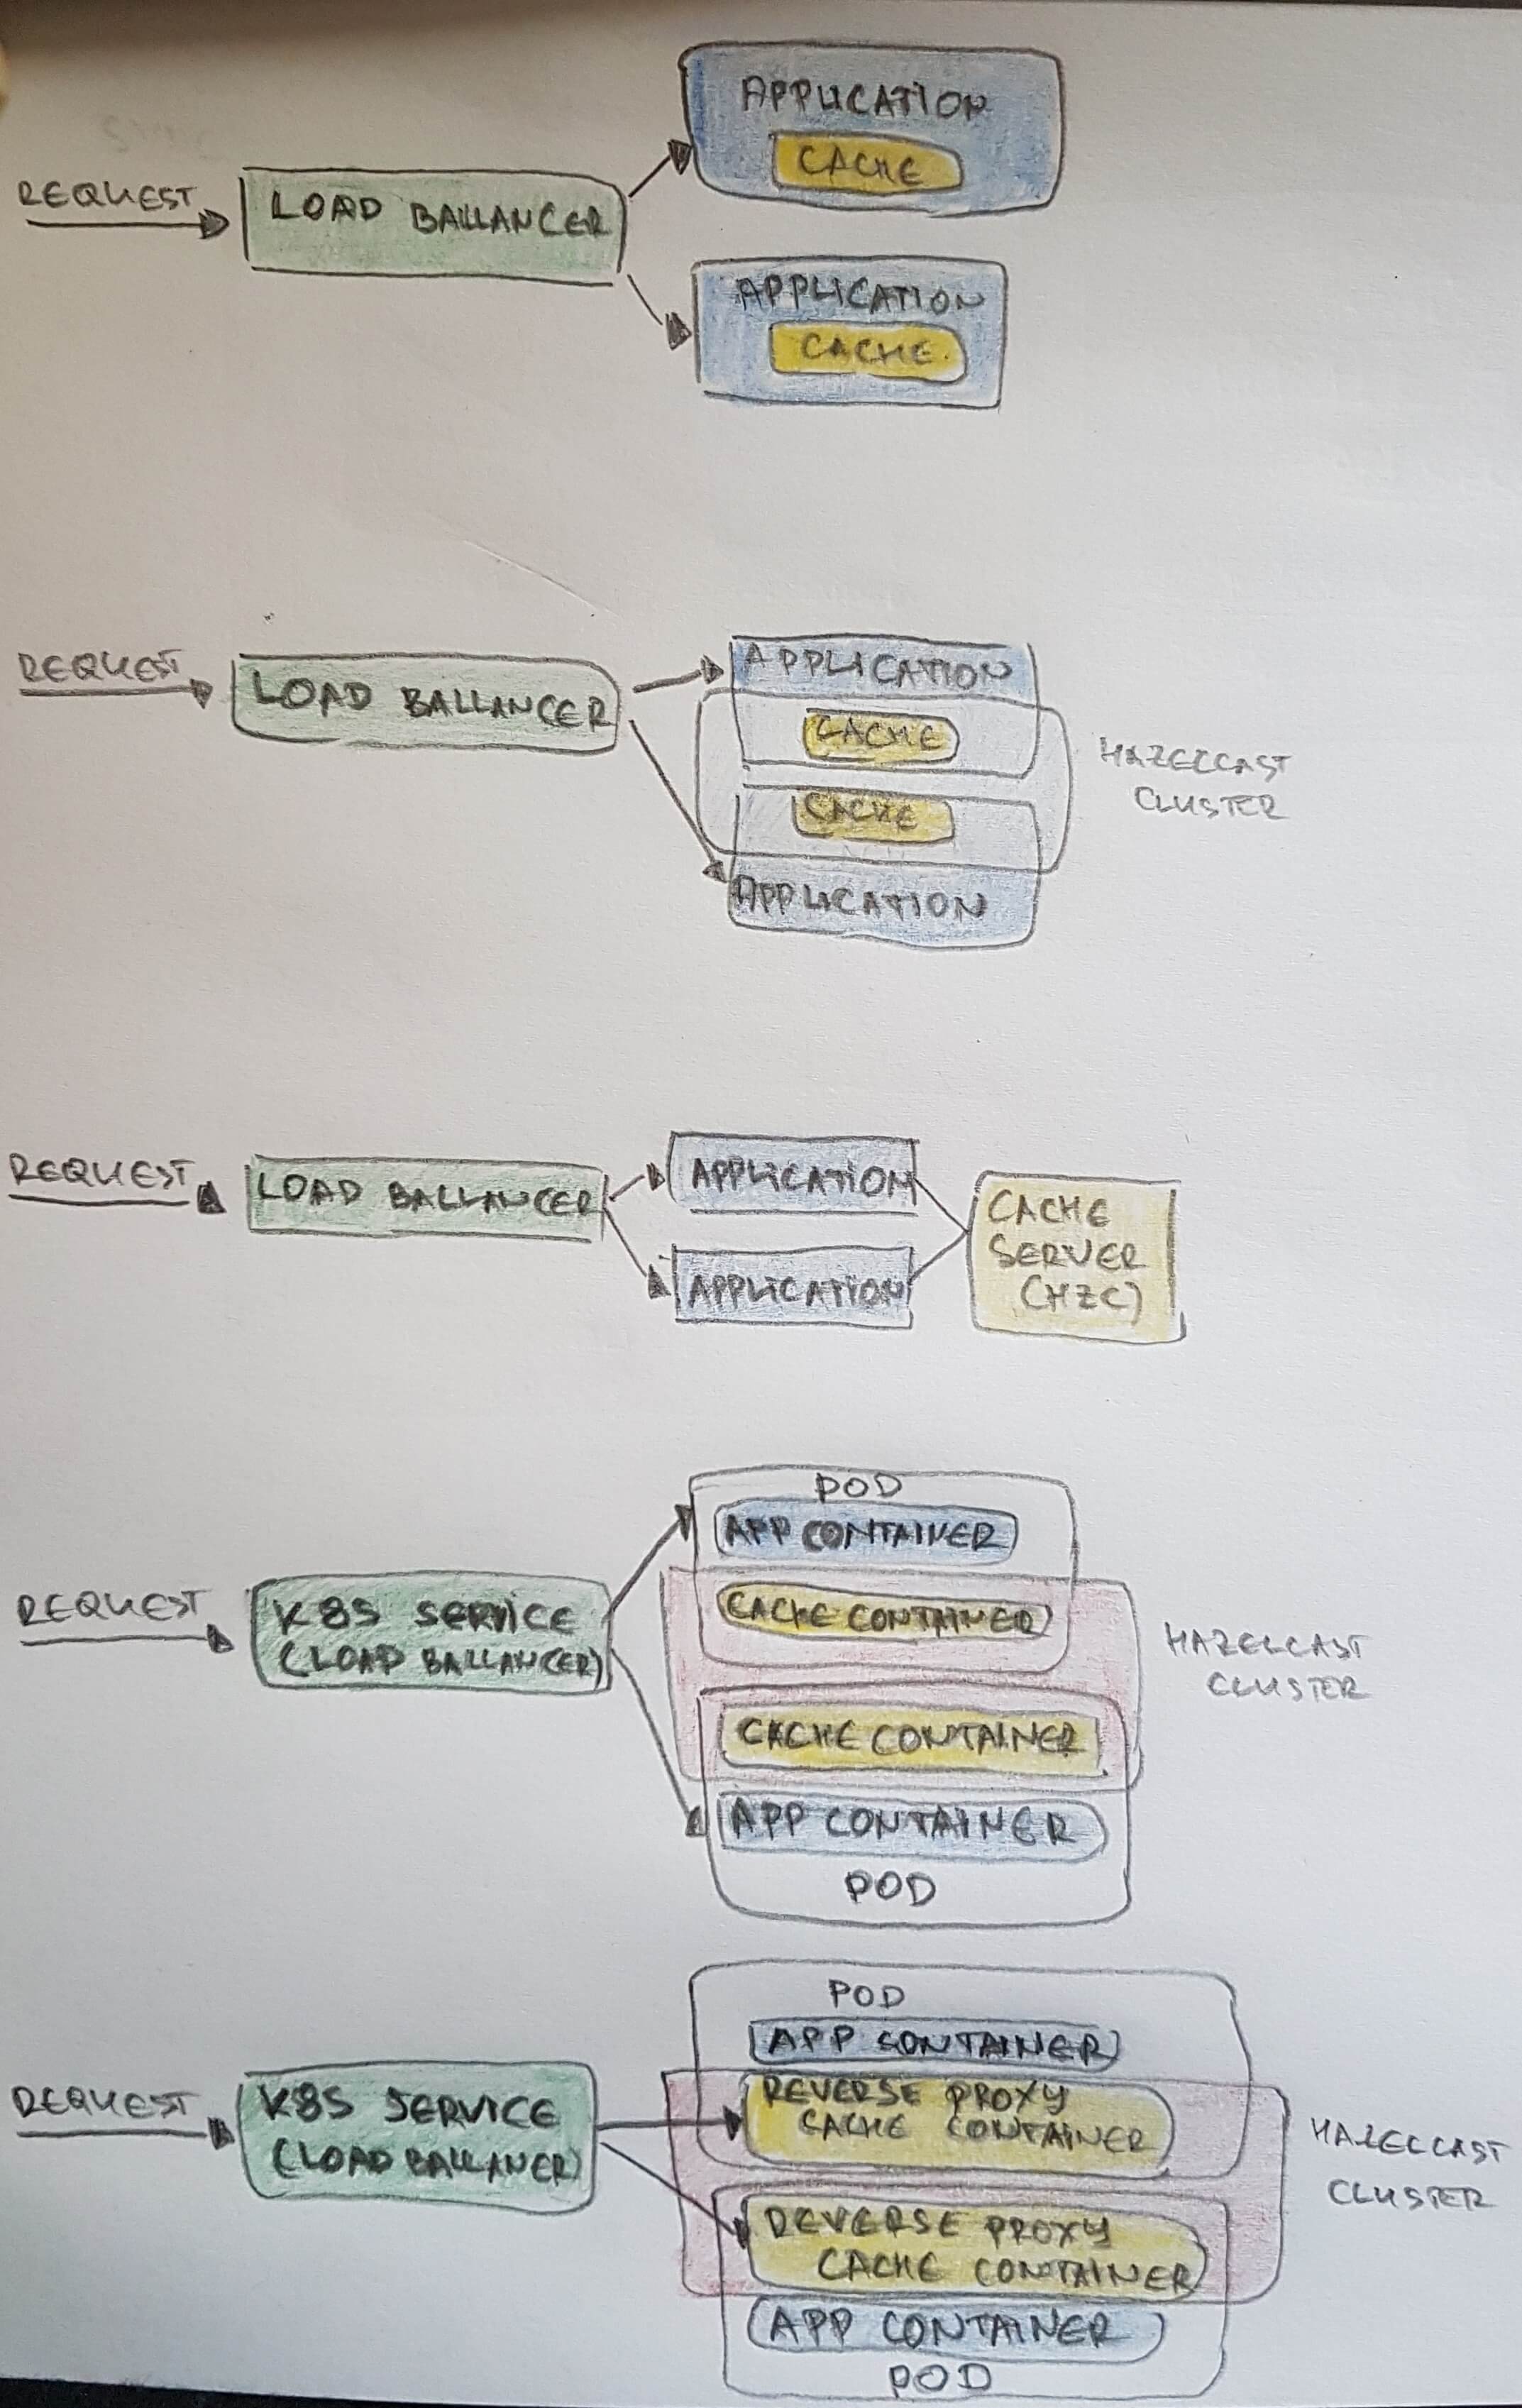 APPLICATION
CACHE
REQUEST
LOAD BALLANCER
APPLICATION
CACHE
REQUEST
LOAD BALLANCER
APPLICATION
CACHE
CACHE
APPLICATION
HAZELCAST
CLUSTER
REQUEST
LOAD BALLANCER
APPLICATION
APPLICATION
CACHE
SERVER
(HZC)
REQUEST
K8S SERVICE
(LOAD BALLANCER)
POD
APP CONTAINER
CACHE CONTAINER
CACHE CONTAINER
APP CONTAINER
POD
HAZELCAST
CLUSTER
REQUEST
K8S SERVICE
(LOAD BALLANER)
POD
APP CONTAINER
REVERSE PROXY
CACHE CONTAINER
REVERSE PROXY
CACHE CONTAINER
APP CONTAINER
POD
HAZELCAST
CLUSTER